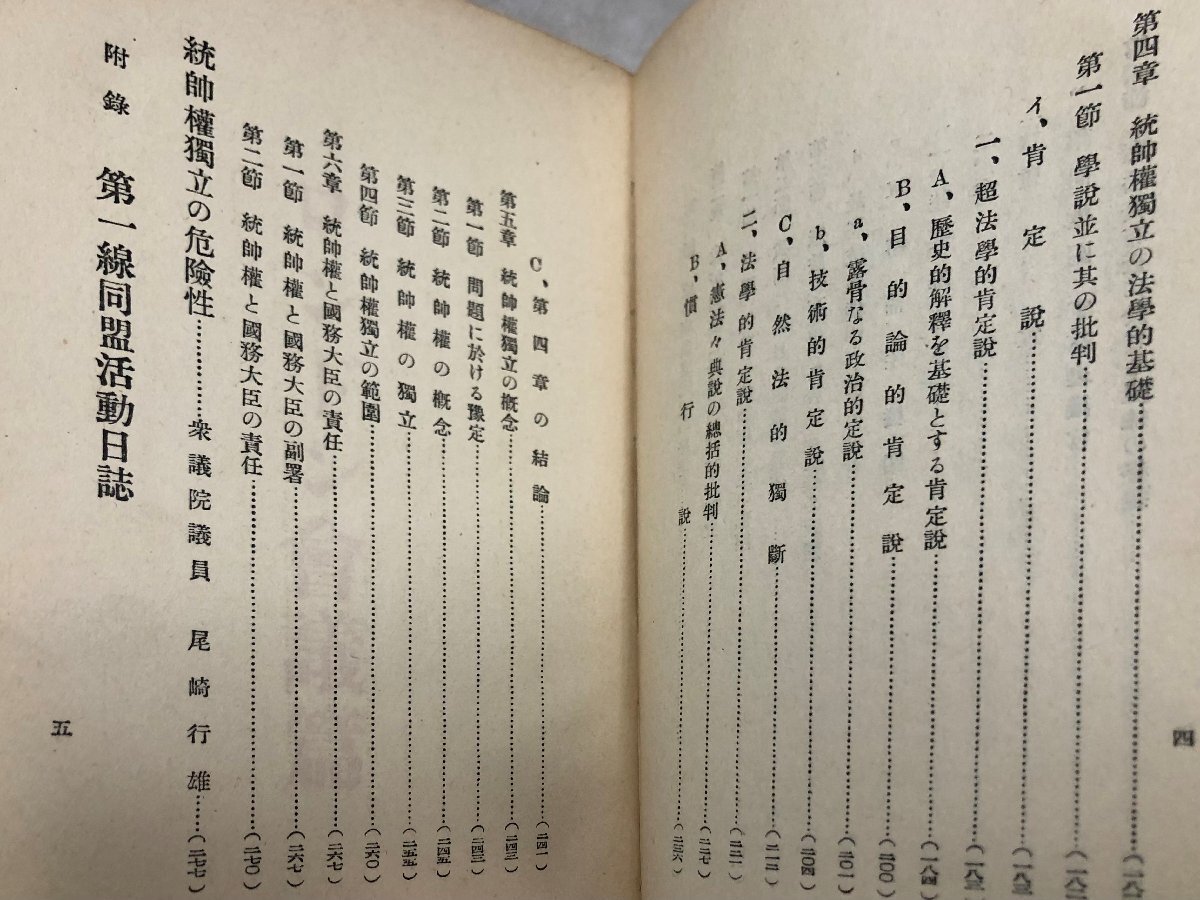 第四章 統帥權獨立の法學的基礎……………(一八
第一節 學說並に其の批判……………(一八二
イ、肯定說……………(一八三
一、超法學的肯定說……………(一八三
A、歷史的解釋を基礎とする肯定說……………(一八四)
B、目的論的肯定說……………(二〇〇)
a、露骨なる政治的定說……………(二〇一)
b、技術的肯定說……………(二〇四)
C、自然法的獨斷……………(二一二)
二、法學的肯定說……………(二二一)
A、憲法々典說の總括的批判……………(二二七)
B、慣行說……………(二三六)
四
C、第四章の結論……………(二四一)
第五章 統帥權獨立の概念……………(二四三)
第一節 問題に於ける豫定……………(二四三)
第二節 統帥權の概念……………(二四五)
第三節 統帥權の獨立……………(二五五)
第四節 統帥權獨立の範圍……………(二六〇)
第六章 統帥權と國務大臣の責任……………(二六七)
第一節 統帥權と國務大臣の副署……………(二六七)
第二節 統帥權と國務大臣の責任……………(二七〇)
統帥權獨立の危險性……………衆議院議員 尾崎行雄……(二七七)
附錄 第一線同盟活動日誌
五